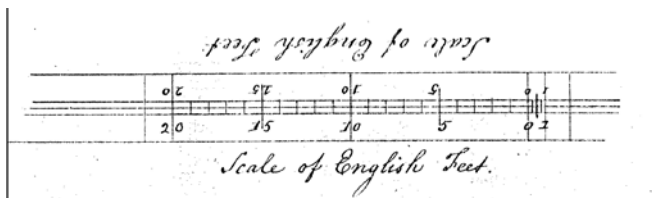 Scale of English Feet
1 0 5 10 15 20
20 15 10 5 0 1
Scale of English Feet.